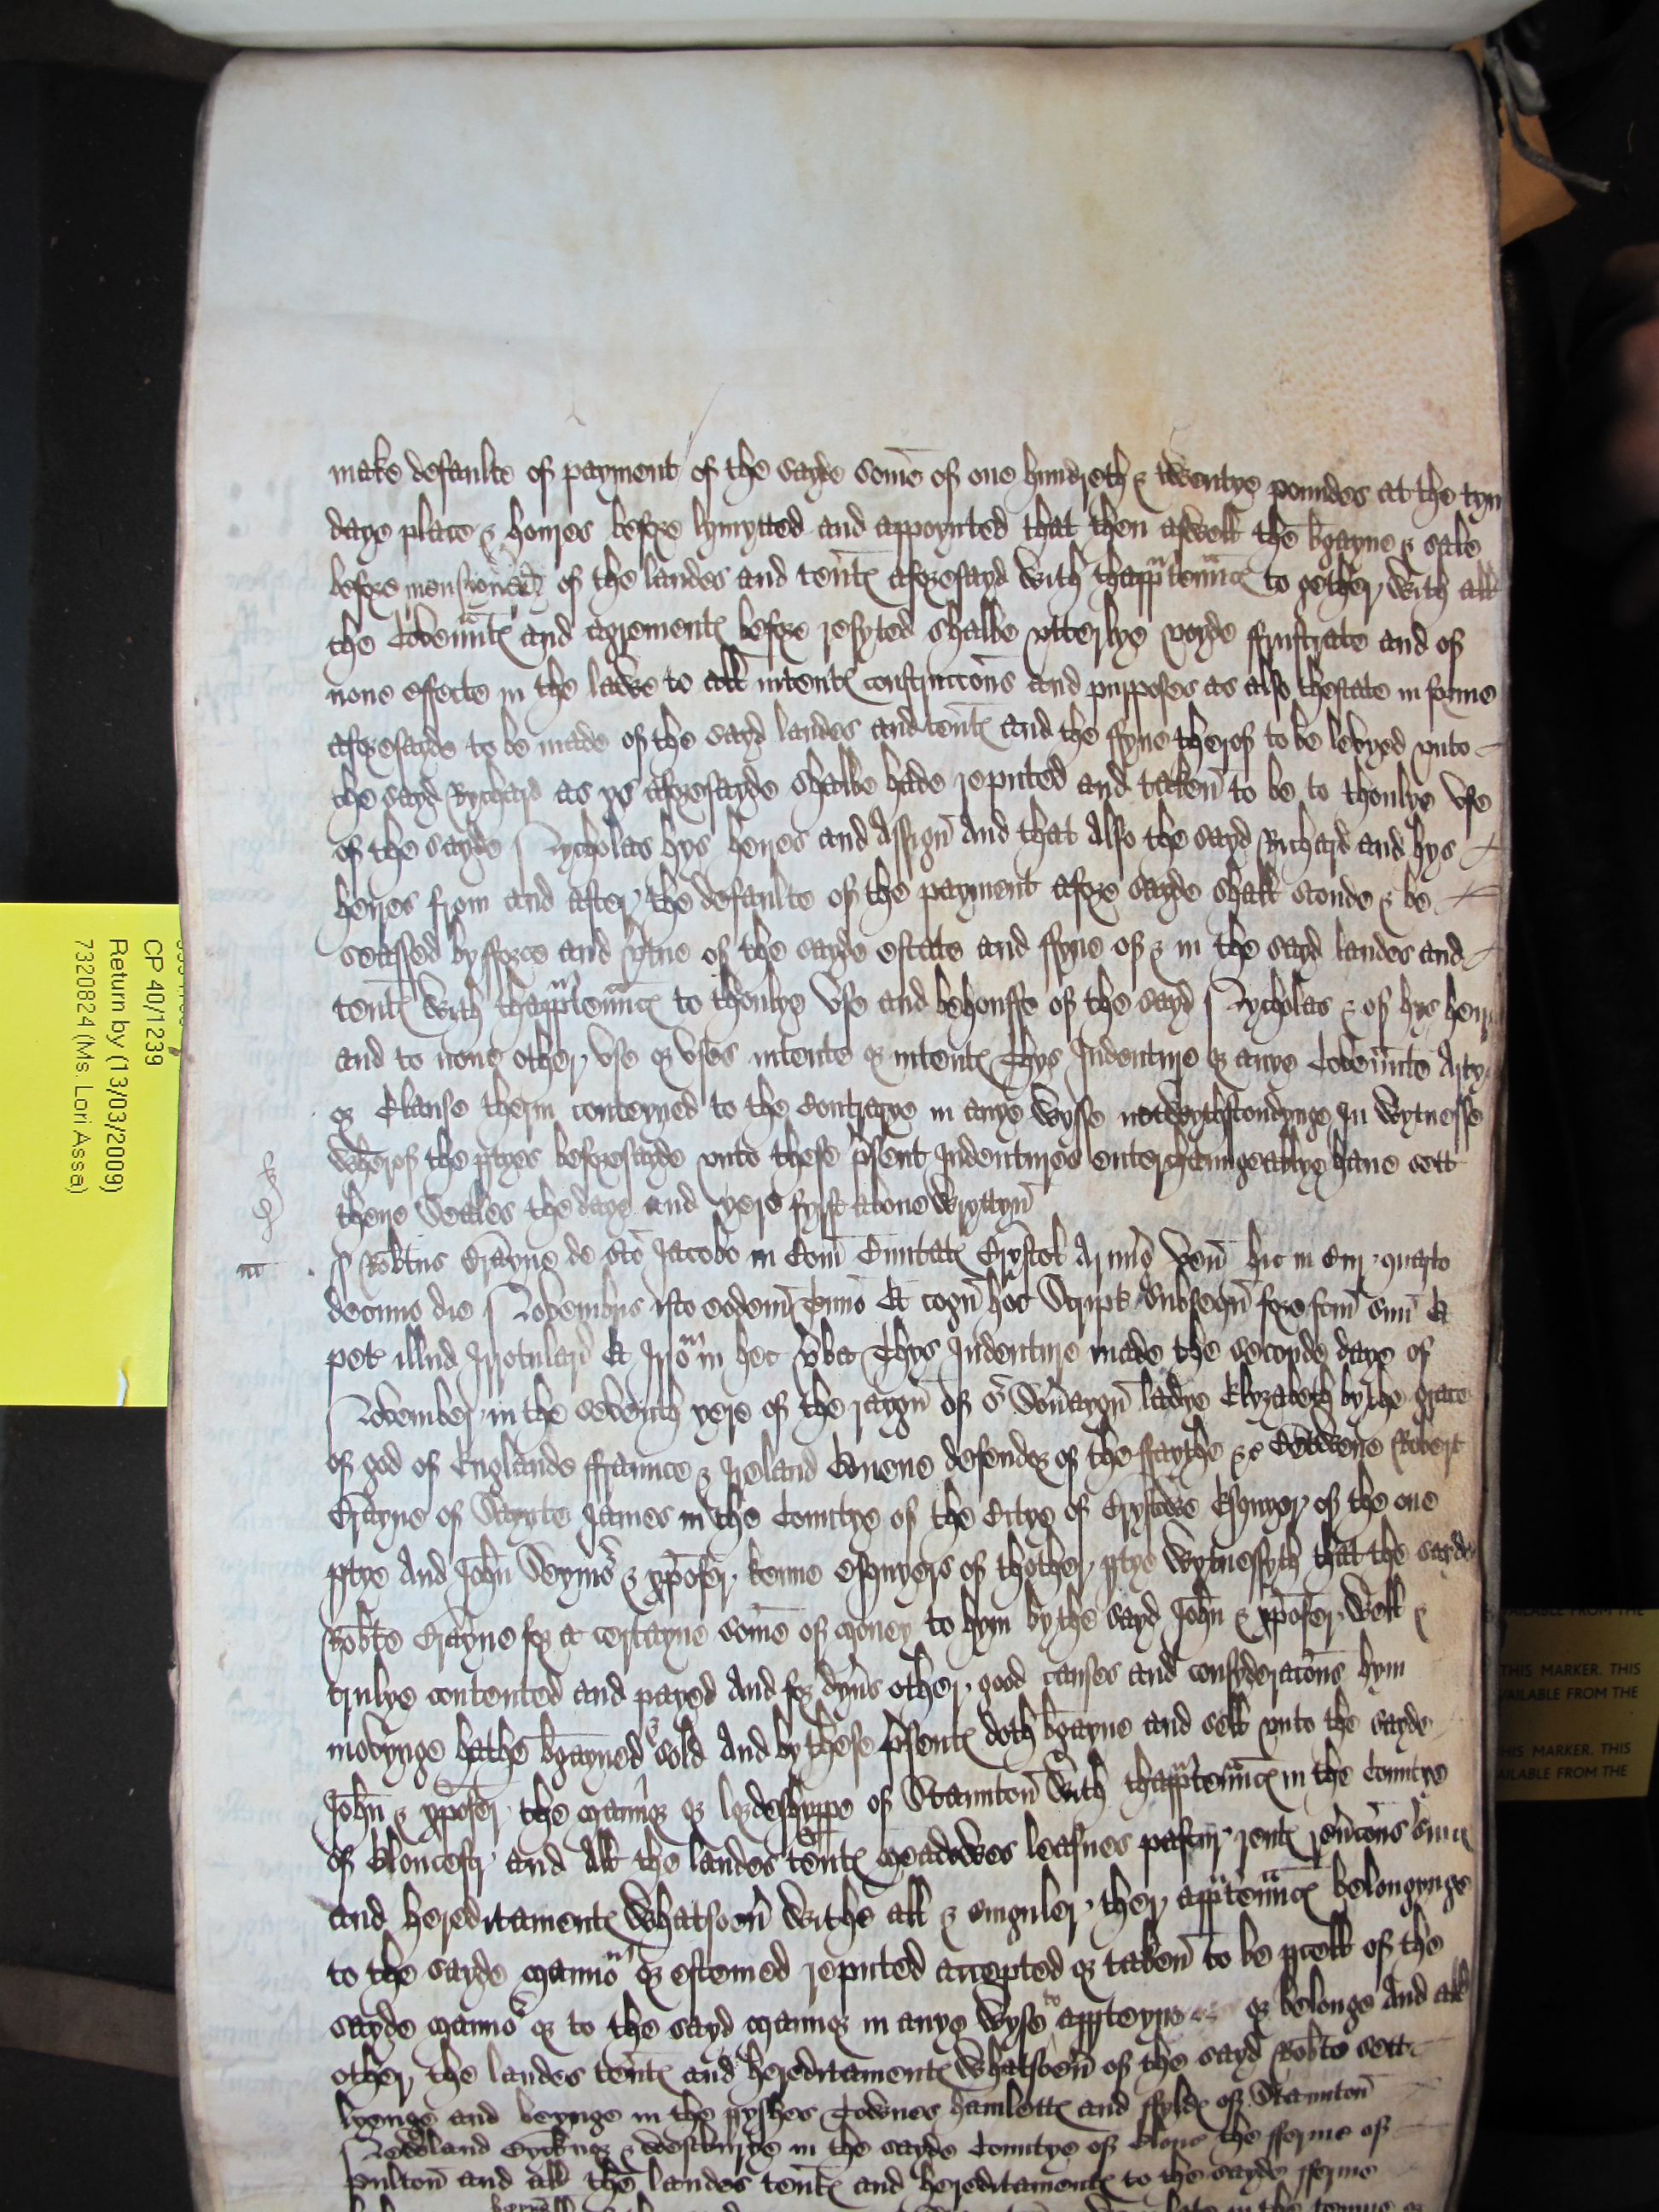 make defaulte of payment of the sayde some of one hundreth & twentye poundes at the tym
daye place & houres before lymytted and appoynted that then aswell the bgayne & sale
before mensioned of the landes and tent aforesayd with thapptennc to gether with all
the Covennt and agrement before resyted shalbe utterlye voyde ffrustrate and of
none effecte in the lawe to all intent construccons and purposes as also thestate in forme
aforesayde to be made of the sayd landes and tent and the ffyne therof to be levyed unto
the sayd Rychard as ys aforesayde shalbe hade reputed and taken to be to thonlye use
of the sayde Nycholas hys heires and Assign And that Also the sayd Richard and hys
heires from and after the defaulte of the payment afore sayde shall stonde & be
seassed by fforce and vtue of the sayde estate and ffyne of & in the sayd landes and
tent with thapptennc to thonlye use and behouffe of the sayd Nycholas & of hys heir
and to none other use or uses intente or intent Thys Indenture or anye Covennte Arty
or Clause therin conteyned to the Contrarye in anye wysse notwythstondynge In Wytnesse
wherof the ptyes beforesayde unto these psent Indentures enterchaungeablye have sett
there Sealles the daye and yere fyrst above wryttyn
Robtus Grayne de Sco Jacobo in Com Civitat Brystol Armig ven hic in Cur quarto
decimo die Novembris isto eodem Termino Et cogn hoc Script Subsequen fore fcm suu Et
pet illud Irrotulari Et Irrom in hec vba Thys Indenture made the seconde daye of
November in the seventh yere of the raygn of or Soveraygn ladye Elyzabeth by the grace
of god of Englande ffraunce & Ireland Quene defendor of the ffaythe &c Betwene Robert
of Saynte James in the Countye of the Cytye of Brystowe Esquyer of the one
ptye And John Seyms & xpofer kenne esquyers of thother ptye Wytnessyth that the sayde
Robte for a certayne some of money to hym by the sayd John & xpofer well &
trulye contented and payed And for dyvrs other good causes and consyderacons hym
movynge hathe bgayned & sold And by these psent doth bgayne and sell unto the sayde
John & xpofer the mannor or lordeshyppe of Staunton with thapptennc in the Countye
of Gloucestr and All the landes tent meadowes leasues pastur rent revcons
and hereditament Whatsoevr withe all & singuler ther apptennc belongynge
to the sayde mannor or estemed reputed accepted or taken to be pcell of the
sayde mannor or to the sayd mannor in anye wyse to appteyne or belonge And all
other the landes tent and hereditament Whatsoevr of the sayd Robte sett
lyenge and beynge in the pyshes Townes hamlett and ffyld of Staunton
Newland & westburye in the sayde Countye of Glouc the fferme of
pulton and all the landes tent and hereditament to the sayde fferme
CP 40/1239
Return by (13/03/2009)
73208224 (Ms. Lori Assa)
AILABLE FROM THE
THIS MARKER. THIS
VAILABLE FROM THE
HIS MARKER. THIS
AILABLE FROM THE